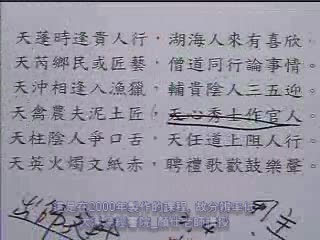 天蓬時逢貴人行，湖海人來有喜欣
天芮鄉民或匠藝，僧道同行論事情。
天沖相逢入漁獵，輔貴陰人三五迎。
天禽農夫泥土匠，天心秀士作官人。
天柱陰人爭口舌，天任道上阻人行。
天英火燭文紙赤，聘禮歌歡鼓樂聲。
是在2000年製作的課程，故分辨率